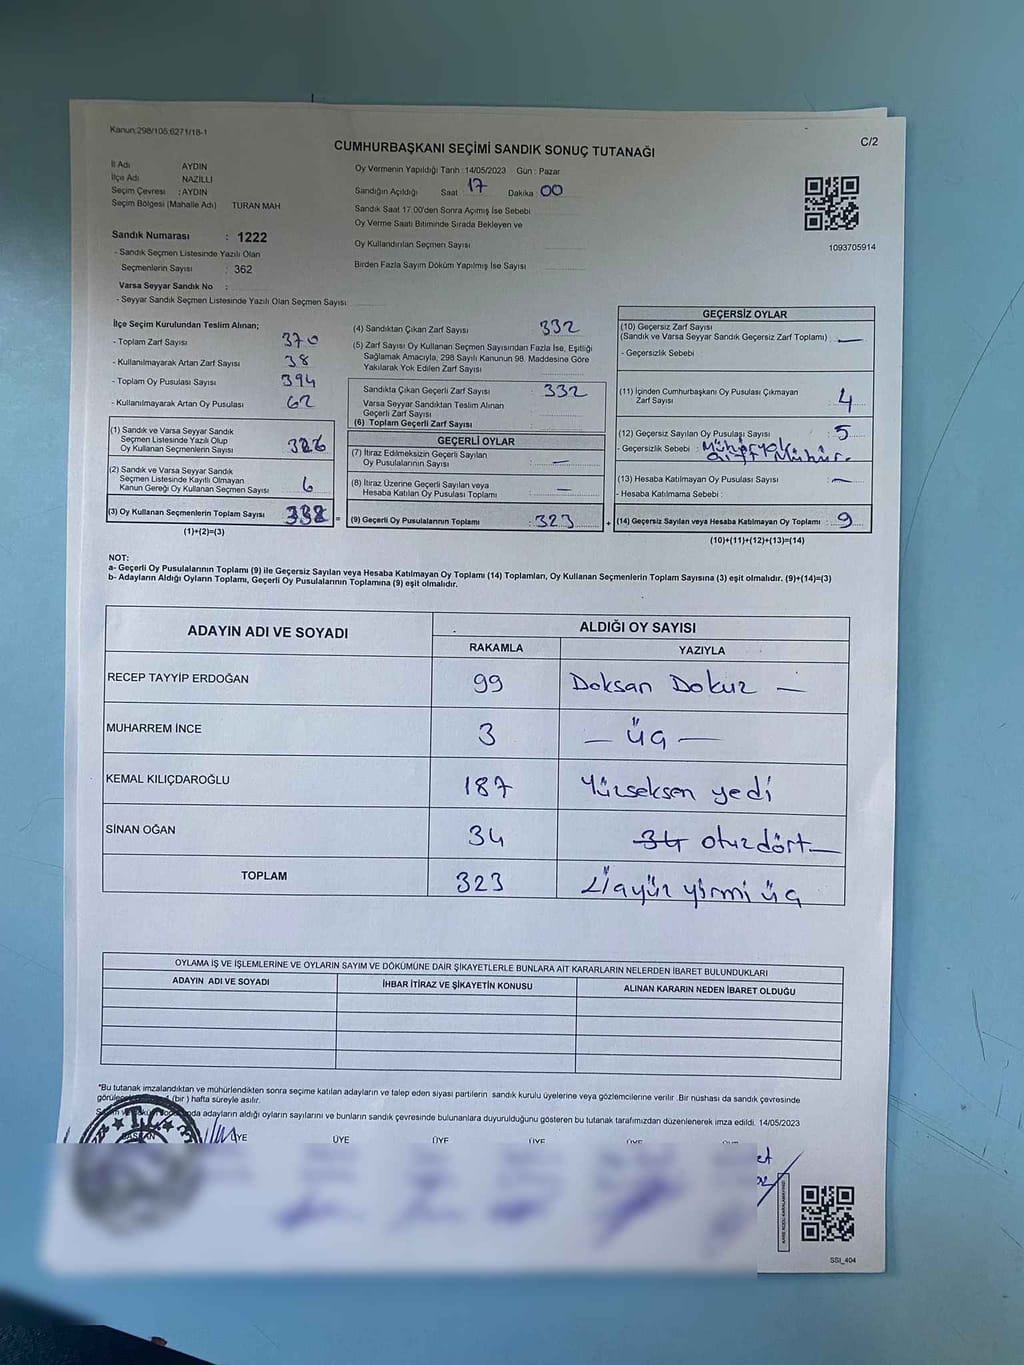 Kanun:298/105;6271/18-1
C/2
CUMHURBAŞKANI SEÇİMİ SANDIK SONUÇ TUTANAĞI
İl Adı AYDIN
İlçe Adı NAZİLLİ
Seçim Çevresi : AYDIN
Seçim Bölgesi (Mahalle Adı) TURAN MAH
Sandık Numarası : 1222
- Sandık Seçmen Listesinde Yazılı Olan
Seçmenlerin Sayısı : 362
Varsa Seyyar Sandık No :
- Seyyar Sandık Seçmen Listesinde Yazılı Olan Seçmen Sayısı
Oy Vermenin Yapıldığı Tarih :14/05/2023 Gün : Pazar
Sandığın Açıldığı Saat 17 Dakika 00
Sandık Saat 17.00'den Sonra Açımış İse Sebebi
Oy Verme Saati Bitiminde Sırada Bekleyen ve
Oy Kullandırılan Seçmen Sayısı
Birden Fazla Sayım Döküm Yapılmış İse Sayısı
1093705914
İlçe Seçim Kurulundan Teslim Alınan;
- Toplam Zarf Sayısı 370
- Kullanılmayarak Artan Zarf Sayısı 38
- Toplam Oy Pusulası Sayısı 394
- Kullanılmayarak Artan Oy Pusulası 62
(1) Sandık ve Varsa Seyyar Sandık
Seçmen Listesinde Yazılı Olup
Oy Kullanan Seçmenlerin Sayısı 326
(2) Sandık ve Varsa Seyyar Sandık
Seçmen Listesinde Kayıtlı Olmayan
Kanun Gereği Oy Kullanan Seçmen Sayısı 6
(3) Oy Kullanan Seçmenlerin Toplam Sayısı 332 =
(1)+(2)=(3)
(4) Sandıktan Çıkan Zarf Sayısı 332
(5) Zarf Sayısı Oy Kullanan Seçmen Sayısından Fazla İse, Eşitliği
Sağlamak Amacıyla, 298 Sayılı Kanunun 98. Maddesine Göre
Yakılarak Yok Edilen Zarf Sayısı
Sandıkta Çıkan Geçerli Zarf Sayısı 332
Varsa Seyyar Sandıktan Teslim Alınan
Geçerli Zarf Sayısı
(6) Toplam Geçerli Zarf Sayısı
GEÇERLİ OYLAR
(7) İtiraz Edilmeksizin Geçerli Sayılan
Oy Pusulalarının Sayısı : —
(8) İtiraz Üzerine Geçerli Sayılan veya
Hesaba Katılan Oy Pusulası Toplamı : —
(9) Geçerli Oy Pusulalarının Toplamı : 323 +
GEÇERSİZ OYLAR
(10) Geçersiz Zarf Sayısı
(Sandık ve Varsa Seyyar Sandık Geçersiz Zarf Toplamı) : —
- Geçersizlik Sebebi :
(11) İçinden Cumhurbaşkanı Oy Pusulası Çıkmayan
Zarf Sayısı : 4
(12) Geçersiz Sayılan Oy Pusulası Sayısı : 5
- Geçersizlik Sebebi : Mühür yok
Çift Mühür.
(13) Hesaba Katılmayan Oy Pusulası Sayısı : —
- Hesaba Katılmama Sebebi :
(14) Geçersiz Sayılan veya Hesaba Katılmayan Oy Toplamı : 9
(10)+(11)+(12)+(13)=(14)
NOT:
a- Geçerli Oy Pusulalarının Toplamı (9) ile Geçersiz Sayılan veya Hesaba Katılmayan Oy Toplamı (14) Toplamları, Oy Kullanan Seçmenlerin Toplam Sayısına (3) eşit olmalıdır. (9)+(14)=(3)
b- Adayların Aldığı Oyların Toplamı, Geçerli Oy Pusulalarının Toplamına (9) eşit olmalıdır.
ADAYIN ADI VE SOYADI ALDIĞI OY SAYISI
RAKAMLA YAZIYLA
RECEP TAYYİP ERDOĞAN 99 Doksan Dokuz —
MUHARREM İNCE 3 — üç —
KEMAL KILIÇDAROĞLU 187 Yüzseksen yedi
SİNAN OĞAN 34 34 otuzdört —
TOPLAM 323 Üçyüz yirmi üç
OYLAMA İŞ VE İŞLEMLERİNE VE OYLARIN SAYIM VE DÖKÜMÜNE DAİR ŞİKAYETLERLE BUNLARA AİT KARARLARIN NELERDEN İBARET BULUNDUKLARI
ADAYIN ADI VE SOYADI İHBAR İTİRAZ VE ŞİKAYETİN KONUSU ALINAN KARARIN NEDEN İBARET OLDUĞU
*Bu tutanak imzalandıktan ve mühürlendikten sonra seçime katılan adayların ve talep eden siyasi partilerin sandık kurulu üyelerine veya gözlemcilerine verilir .Bir nüshası da sandık çevresinde
(bir ) hafta süreyle asılır.
adayların aldığı oyların sayılarını ve bunların sandık çevresinde bulunanlara duyurulduğunu gösteren bu tutanak tarafımızdan düzenlenerek imza edildi. 14/05/2023
BAŞKAN ÜYE ÜYE ÜYE ÜYE ÜYE
SSI_404